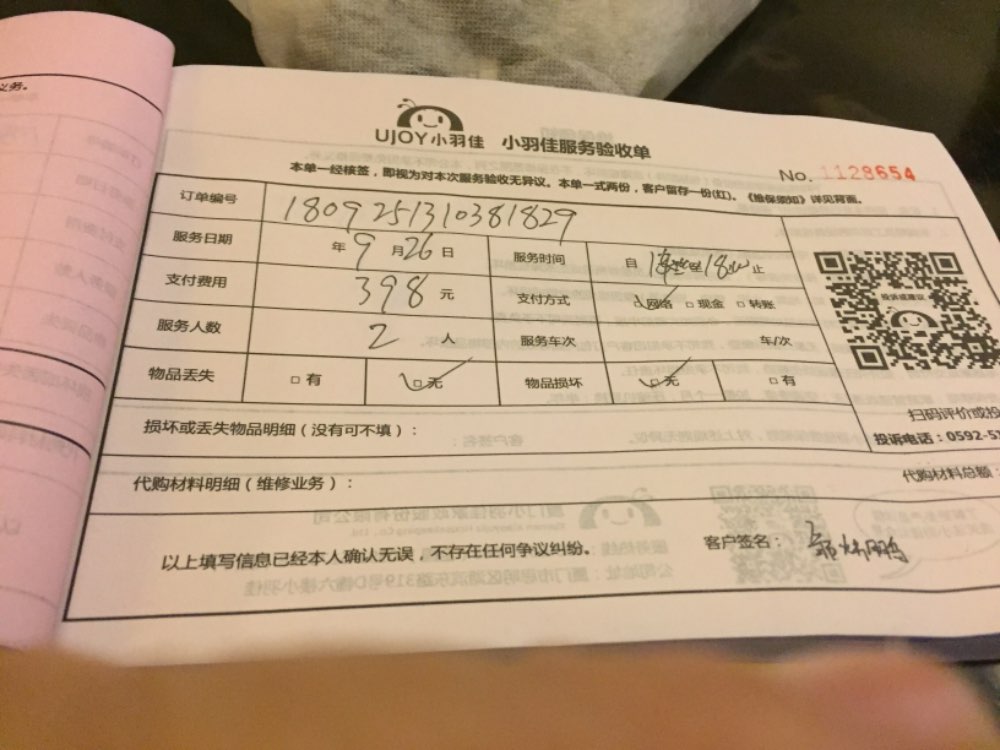 义务。
UJOY小羽佳 小羽佳服务验收单
No. 1128654
本单一经核签，即视为对本次服务验收无异议。本单一式两份，客户留存一份(红)。《维保须知》详见背面。
订单编号 1809251310381829
服务日期 年 9 月 26 日 服务时间 自 18 止
支付费用 398 元 支付方式 网络 现金 转账
服务人数 2 人 服务车次 车/次
物品丢失 有 无 物品损坏 无 有
投诉或建议
扫码评价或投
损坏或丢失物品明细（没有可不填）：
投诉电话：0592-5
代购材料明细（维修业务）：
代购材料总额
以上填写信息已经本人确认无误，不存在任何争议纠纷。
客户签名：